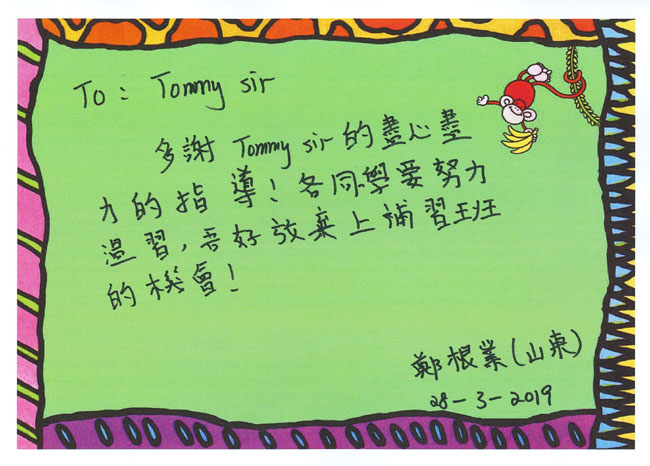 To : Tommy sir
多謝 Tommy sir 的盡心盡
力的指導！各同學要努力
溫習，吾好放棄上補習班
的機會！
鄭根業（山東）
28-3-2019